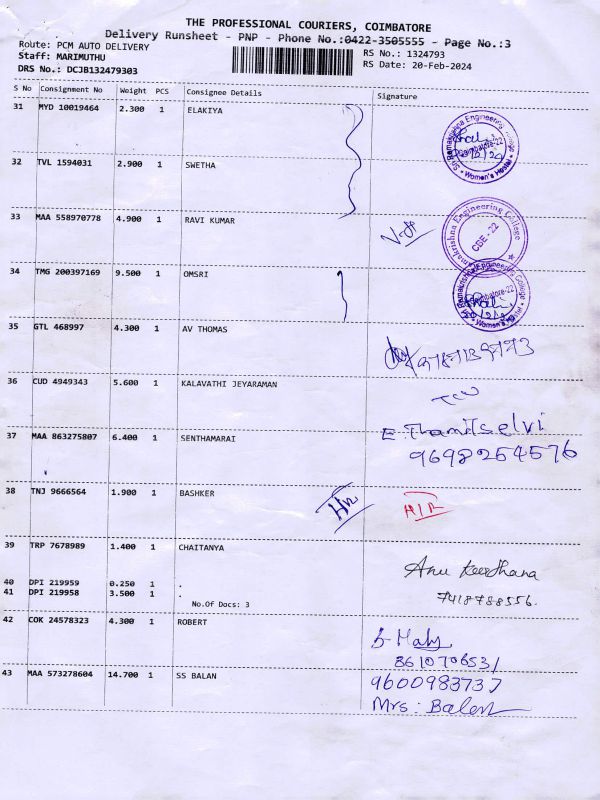 THE PROFESSIONAL COURIERS, COIMBATORE
Delivery Runsheet - PNP - Phone No.:0422-3505555 - Page No.:3
Route: PCM AUTO DELIVERY
Staff: MARIMUTHU
DRS No.: DCJB132479303
RS No.: 1324793
RS Date: 20-Feb-2024
S No Consignment No Weight PCS Consignee Details Signature
31 MYD 10019464 2.300 1 ELAKIYA
Sri Ramakrishna Engineering College
Coimbatore-22
Women's Hostel
32 TVL 1594031 2.900 1 SWETHA
33 MAA 558970778 4.900 1 RAVI KUMAR
Ramakrishna Engineering College
CBE - 22
34 TMG 200397169 9.500 1 OMSRI
Sri Ramakrishna Engineering College
Coimbatore-22
Women's Hostel
35 GTL 468997 4.300 1 AV THOMAS
36 CUD 4949343 5.600 1 KALAVATHI JEYARAMAN
E. Thamilselvi
37 MAA 863275807 6.400 1 SENTHAMARAI
9698254576
38 TNJ 9666564 1.900 1 BASHKER
39 TRP 7678989 1.400 1 CHAITANYA
Anu Keerthana
40 DPI 219959 0.250 1 .
41 DPI 219958 3.500 1 .
7418788556.
No.Of Docs: 3
42 COK 24578323 4.300 1 ROBERT
8610706531
43 MAA 573278604 14.700 1 SS BALAN
9600983737
Mrs: Balan